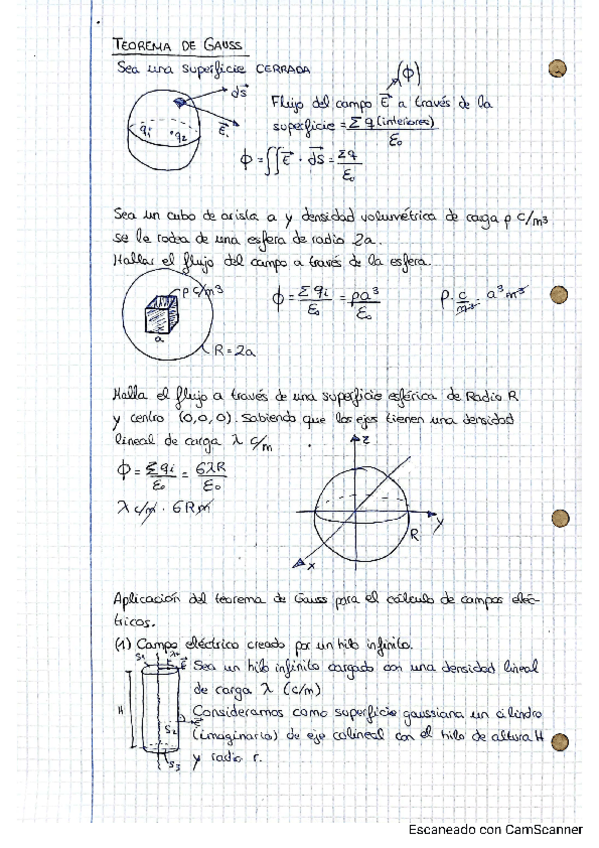 TEOREMA DE GAUSS
Sea una superficie CERRADA
(Φ)
ds
Flujo del campo E a través de la
q1 q2 E
superficie = Σq(interiores)/ε₀
Φ = ∬E · ds = Σq/ε₀
Sea un cubo de arista a y densidad volumétrica de carga ρ c/m³
se le rodea de una esfera de radio 2a.
Hallar el flujo del campo a través de la esfera.
ρ c/m³
Φ = Σqi/ε₀ = ρa³/ε₀
ρ · c/m³ · a³m³
a
R = 2a
Halla el flujo a través de una superficie esférica de Radio R
y centro (0,0,0). Sabiendo que los ejes tienen una densidad
lineal de carga λ c/m
z
Φ = Σqi/ε₀ = 6λR/ε₀
λ c/m · 6Rm
y
R
x
Aplicación del teorema de Gauss para el cálculo de campos eléc-
tricos.
(1) Campo eléctrico creado por un hilo infinito.
S1
Sea un hilo infinito cargado con una densidad lineal
de carga λ (c/m)
H
Consideramos como superficie gaussiana un cilindro
S2
(imaginario) de eje colineal con el hilo de altura H
S3
y radio r.
Escaneado con CamScanner